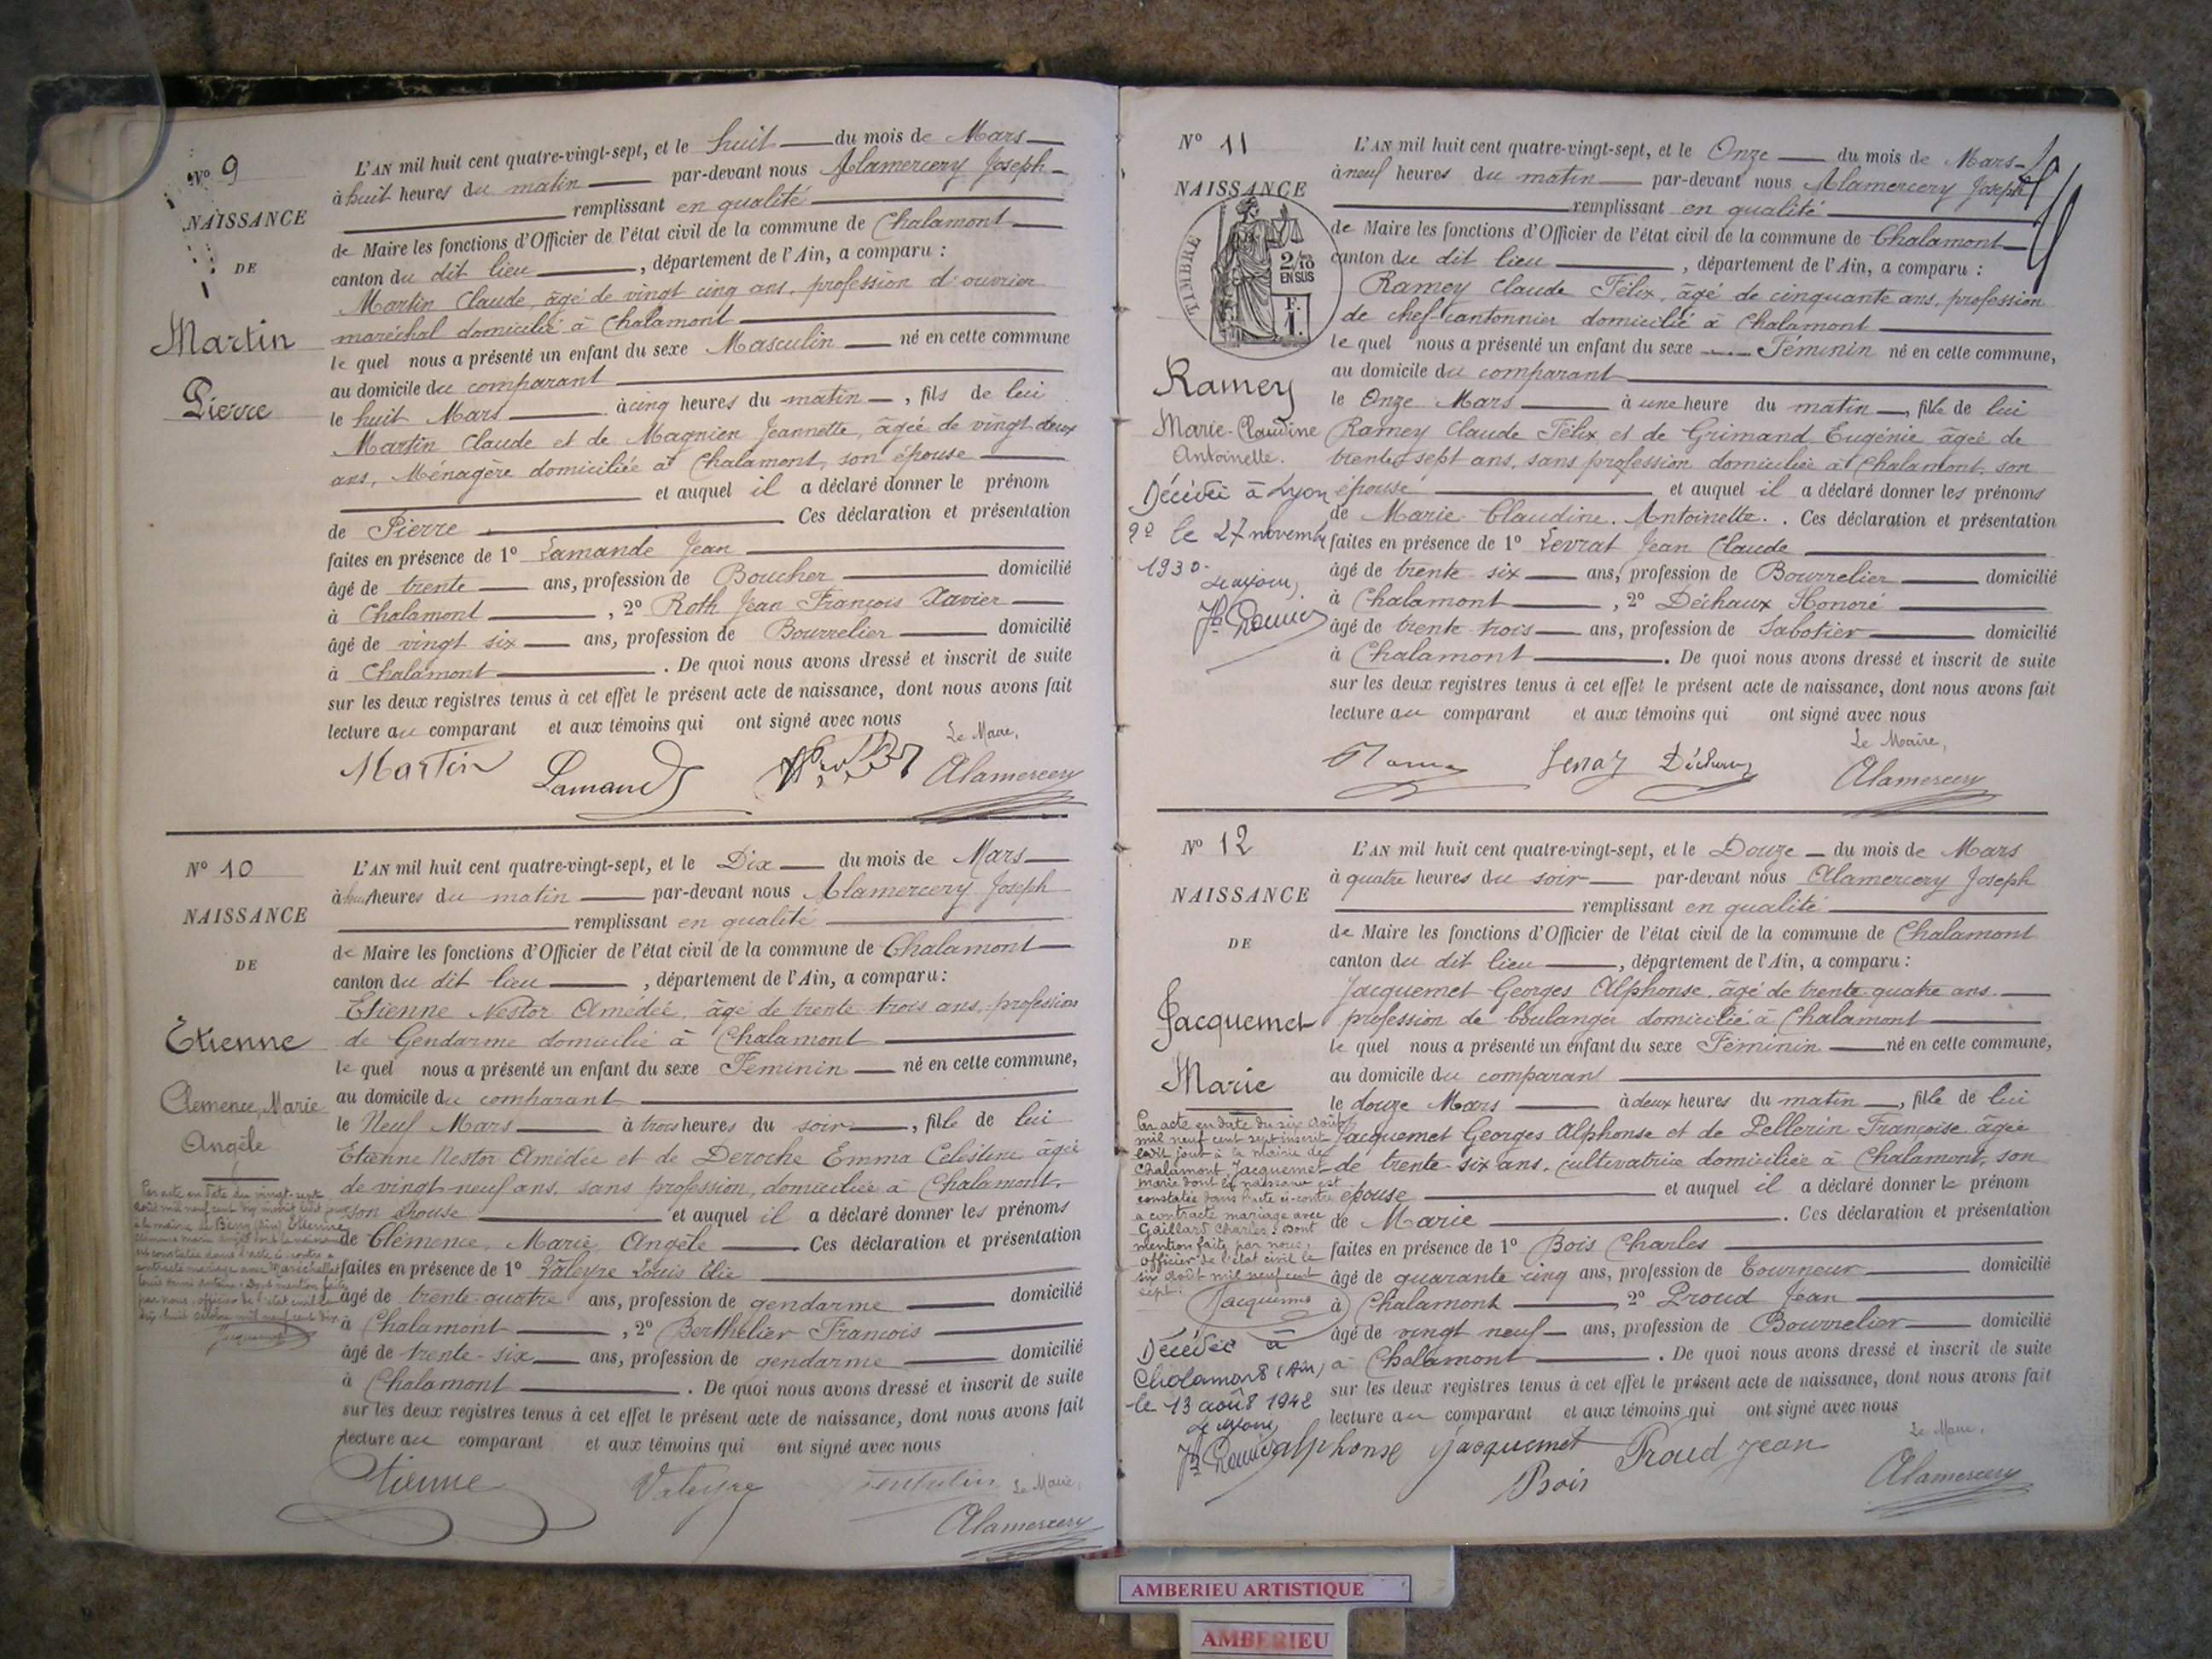 Nº 9
NAISSANCE
DE
Martin
Pierre
L'AN mil huit cent quatre-vingt-sept, et le huit du mois de Mars
à huit heures du matin par-devant nous Alamercery Joseph
remplissant en qualité
de Maire les fonctions d'Officier de l'état civil de la commune de Chalamont
canton du dit lieu, département de l'Ain, a comparu :
Martin Claude, âgé de vingt cinq ans, profession d'ouvrier
maréchal domicilié à Chalamont
le quel nous a présenté un enfant du sexe Masculin né en cette commune
au domicile du comparant
le huit Mars à cinq heures du matin, fils de lui
Martin Claude et de Magnien Jeannette, âgée de vingt deux
ans, Ménagère domiciliée à Chalamont, son épouse
et auquel il a déclaré donner le prénom
de Pierre Ces déclaration et présentation
faites en présence de 1º Lamande Jean
âgé de trente ans, profession de Boucher domicilié
à Chalamont, 2º Roth Jean François Xavier
âgé de vingt six ans, profession de Bourrelier domicilié
à Chalamont. De quoi nous avons dressé et inscrit de suite
sur les deux registres tenus à cet effet le présent acte de naissance, dont nous avons fait
lecture au comparant et aux témoins qui ont signé avec nous
Le Maire,
Martin Lamande Alamercery
Nº 10
NAISSANCE
DE
Etienne
Clemence, Marie
Angèle
L'AN mil huit cent quatre-vingt-sept, et le Dix du mois de Mars
à huit heures du matin par-devant nous Alamercery Joseph
remplissant en qualité
de Maire les fonctions d'Officier de l'état civil de la commune de Chalamont
canton du dit lieu, département de l'Ain, a comparu :
Etienne Nestor Amédée, âgé de trente trois ans, profession
de Gendarme domicilié à Chalamont
le quel nous a présenté un enfant du sexe Féminin né en cette commune,
au domicile du comparant
le Neuf Mars à trois heures du soir, fille de lui
Etienne Nestor Amédée et de Deroche Emma Célestine âgée
de vingt neuf ans, sans profession, domiciliée à Chalamont,
son épouse et auquel il a déclaré donner les prénoms
de Clémence, Marie, Angèle Ces déclaration et présentation
faites en présence de 1º Valeyre Louis Elie
âgé de trente-quatre ans, profession de gendarme domicilié
à Chalamont, 2º Berthelier François
âgé de trente-six ans, profession de gendarme domicilié
à Chalamont. De quoi nous avons dressé et inscrit de suite
sur les deux registres tenus à cet effet le présent acte de naissance, dont nous avons fait
lecture au comparant et aux témoins qui ont signé avec nous
Par acte en date du vingt-sept
à la mairie de
est constatée dans l'acte ci-contre a
contracté mariage avec Maréchallat
Dont mention faite
par nous, officier de l'état civil le
dix-huit octobre mil neuf cent dix
Etienne Valeyre Le Maire,
Alamercery
Nº 11
NAISSANCE
TIMBRE
2/10
EN SUS
F.
1.
Ramey
Marie-Claudine
Antoinette.
Décédée à Lyon
2º le 27 novembre
1930.
L'AN mil huit cent quatre-vingt-sept, et le Onze du mois de Mars
à neuf heures du matin par-devant nous Alamercery Joseph
remplissant en qualité
de Maire les fonctions d'Officier de l'état civil de la commune de Chalamont
canton du dit lieu, département de l'Ain, a comparu :
Ramey Claude Félix, âgé de cinquante ans, profession
de chef-cantonnier domicilié à Chalamont
le quel nous a présenté un enfant du sexe Féminin né en cette commune,
au domicile du comparant
le Onze Mars à une heure du matin, fille de lui
Ramey Claude Félix, et de Grimand Eugénie âgée de
trente sept ans, sans profession domiciliée à Chalamont, son
épouse et auquel il a déclaré donner les prénoms
de Marie Claudine. Antoinette. Ces déclaration et présentation
faites en présence de 1º Levrat Jean Claude
âgé de trente six ans, profession de Bourrelier domicilié
à Chalamont, 2º Déchaux Honoré
âgé de trente-trois ans, profession de Sabotier domicilié
à Chalamont. De quoi nous avons dressé et inscrit de suite
sur les deux registres tenus à cet effet le présent acte de naissance, dont nous avons fait
lecture au comparant et aux témoins qui ont signé avec nous
Le Maire,
Alamercery
Nº 12
NAISSANCE
DE
Jacquemet
Marie
L'AN mil huit cent quatre-vingt-sept, et le Douze du mois de Mars
à quatre heures du soir par-devant nous Alamercery Joseph
remplissant en qualité
de Maire les fonctions d'Officier de l'état civil de la commune de Chalamont
canton du dit lieu, département de l'Ain, a comparu :
Jacquemet Georges Alphonse, âgé de trente quatre ans.
profession de boulanger domicilié à Chalamont
le quel nous a présenté un enfant du sexe Féminin né en cette commune,
au domicile du comparant
le douze Mars à deux heures du matin, fille de lui
Jacquemet Georges Alphonse et de Pellerin Françoise âgée
de trente-six ans, cultivatrice domiciliée à Chalamont, son
épouse et auquel il a déclaré donner le prénom
de Marie. Ces déclaration et présentation
faites en présence de 1º Bois Charles
âgé de quarante cinq ans, profession de Tourneur domicilié
à Chalamont, 2º Proud Jean
âgé de vingt neuf ans, profession de Bourrelier domicilié
à Chalamont. De quoi nous avons dressé et inscrit de suite
sur les deux registres tenus à cet effet le présent acte de naissance, dont nous avons fait
lecture au comparant et aux témoins qui ont signé avec nous
Par acte en date du six août
mil neuf cent sept inscrit
ledit jour à la mairie de
Chalamont, Jacquemet
Marie dont la naissance est
constatée dans l'acte ci-contre
a contracté mariage avec
Gaillard Charles. Dont
mention faite par nous,
officier de l'état civil le
six août mil neuf cent
sept.
Jacquemet
Décédée à
Chalamont (Ain)
le 13 août 1942
Le Maire,
alphonse jacquemet Proud jean
Bois Alamercery
AMBERIEU ARTISTIQUE
AMBERIEU